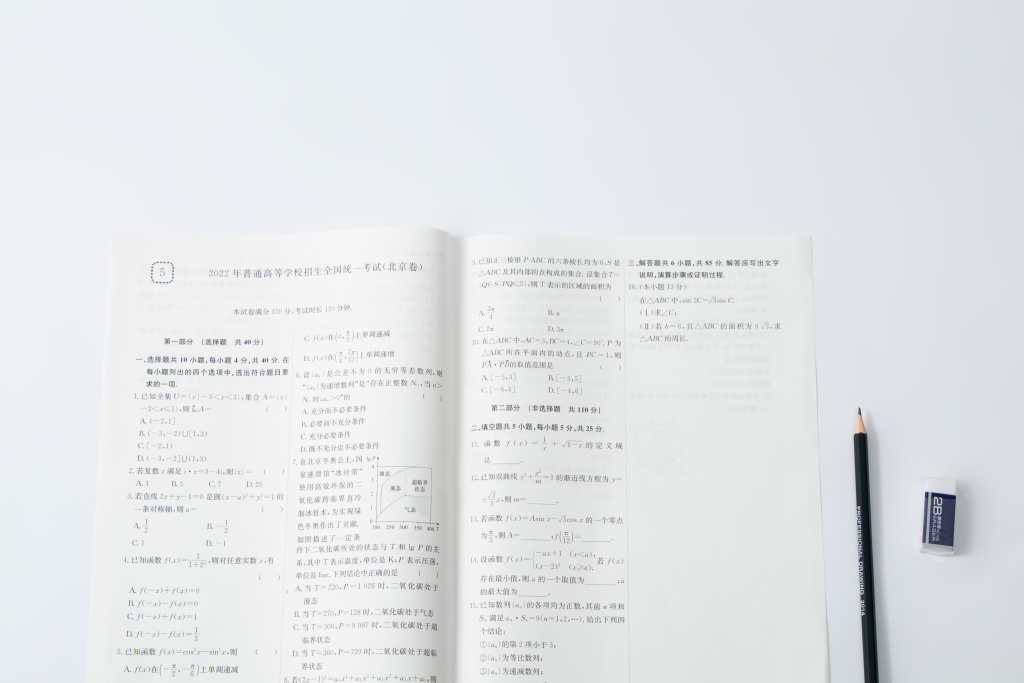 5
2022年普通高等学校招生全国统一考试(北京卷)
本试卷满分150分,考试时长120分钟.
第一部分 (选择题 共40分)
一、选择题共10小题,每小题4分,共40分.在
每小题列出的四个选项中,选出符合题目要
求的一项.
1.已知全集U={x|-3<x<3},集合A={x|
-2<x≤1},则∁ᵤA= ( )
A.(-2,1]
B.(-3,-2)∪[1,3)
C.[-2,1)
D.(-3,-2]∪(1,3)
2.若复数z满足i·z=3-4i,则|z|= ( )
A.1 B.5 C.7 D.25
3.若直线2x+y-1=0是圆(x-a)²+y²=1的
一条对称轴,则a= ( )
A.1/2 B.-1/2
C.1 D.-1
4.已知函数f(x)=1/(1+2ˣ),则对任意实数x,有
( )
A.f(-x)+f(x)=0
B.f(-x)-f(x)=0
C.f(-x)+f(x)=1
D.f(-x)-f(x)=1/3
5.已知函数f(x)=cos²x-sin²x,则 ( )
A.f(x)在(-π/2,-π/6)上单调递减
C.f(x)在(0,π/3)上单调递减
D.f(x)在(π/4,7π/12)上单调递增
6.设{aₙ}是公差不为0的无穷等差数列,则
“{aₙ}为递增数列”是“存在正整数N₀,当n>
N₀时,aₙ>0”的 ( )
A.充分而不必要条件
B.必要而不充分条件
C.充分必要条件
D.既不充分也不必要条件
7.在北京冬奥会上,国
家速滑馆“冰丝带”
使用高效环保的二
氧化碳跨临界直冷
制冰技术,为实现绿
色冬奥作出了贡献.
如图描述了一定条
件下二氧化碳所处的状态与T和lg P的关
系,其中T表示温度,单位是K;P表示压强,
单位是bar.下列结论中正确的是 ( )
A.当T=220,P=1 026时,二氧化碳处于
液态
B.当T=270,P=128时,二氧化碳处于气态
C.当T=300,P=9 987时,二氧化碳处于超
临界状态
D.当T=360,P=729时,二氧化碳处于超临
界状态
8.若(2x-1)⁴=a₄x⁴+a₃x³+a₂x²+a₁x+a₀,则
lg P
固态
液态
超临界
状态
气态
4
3
2
1
0
200 250 300 350 400 T
9.已知正三棱锥P-ABC的六条棱长均为6,S是
△ABC及其内部的点构成的集合.设集合T=
{Q∈S|PQ≤5},则T表示的区域的面积为
( )
A.3π/4 B.π
C.2π D.3π
10.在△ABC中,AC=3,BC=4,∠C=90°.P为
△ABC所在平面内的动点,且PC=1,则
PA·PB的取值范围是 ( )
A.[-5,3] B.[-3,5]
C.[-6,4] D.[-4,6]
第二部分 (非选择题 共110分)
二、填空题共5小题,每小题5分,共25分.
11.函数f(x)=1/x+√(1-x)的定义域
是______.
12.已知双曲线y²+x²/m=1的渐近线方程为y=
±√3/3 x,则m=______.
13.若函数f(x)=Asin x-√3cos x的一个零点
为π/3,则A=______;f(π/12)=______.
14.设函数f(x)={-ax+1 (x<a), (x-2)² (x≥a).若f(x)
存在最小值,则a的一个取值为______;a
的最大值为______.
15.已知数列{aₙ}的各项均为正数,其前n项和
Sₙ满足aₙ·Sₙ=9(n=1,2,…).给出下列四
个结论:
①{aₙ}的第2项小于3;
②{aₙ}为等比数列;
③{aₙ}为递减数列;
三、解答题共6小题,共85分.解答应写出文字
说明,演算步骤或证明过程.
16.(本小题13分)
在△ABC中,sin 2C=√3sin C.
(Ⅰ)求∠C;
(Ⅱ)若b=6,且△ABC的面积为6√3,求
△ABC的周长.
PROFESSIONAL DRAWING 2014
2B